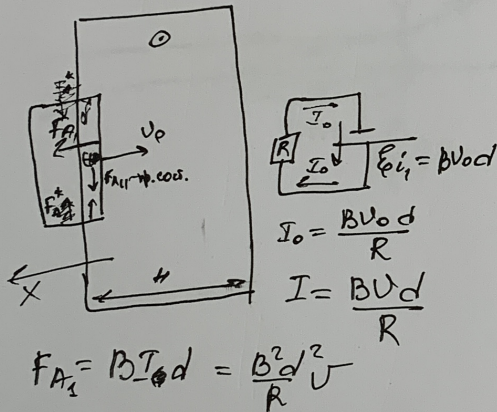 F_A
v_0
F_A
X
H
I_0
R
I_0
ℰi_1 = Bv_0d
I_0 = Bv_0d / R
I = Bvd / R
F_{A_1} = BI_0d = B²d²/R v